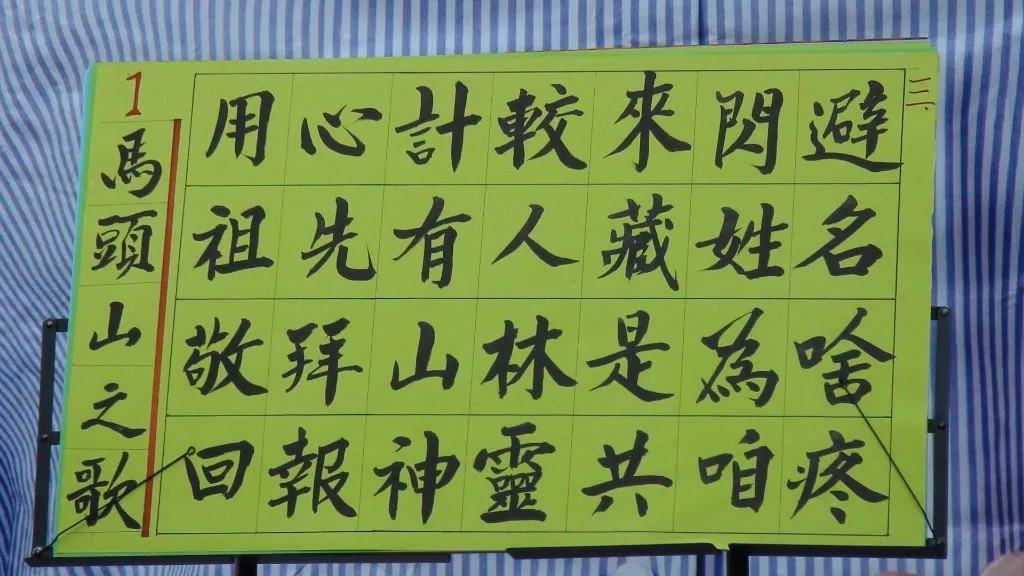 1
馬頭山之歌
用心計較來閃避
祖先有人藏姓名
敬拜山林是為啥
回報神靈共咱疼